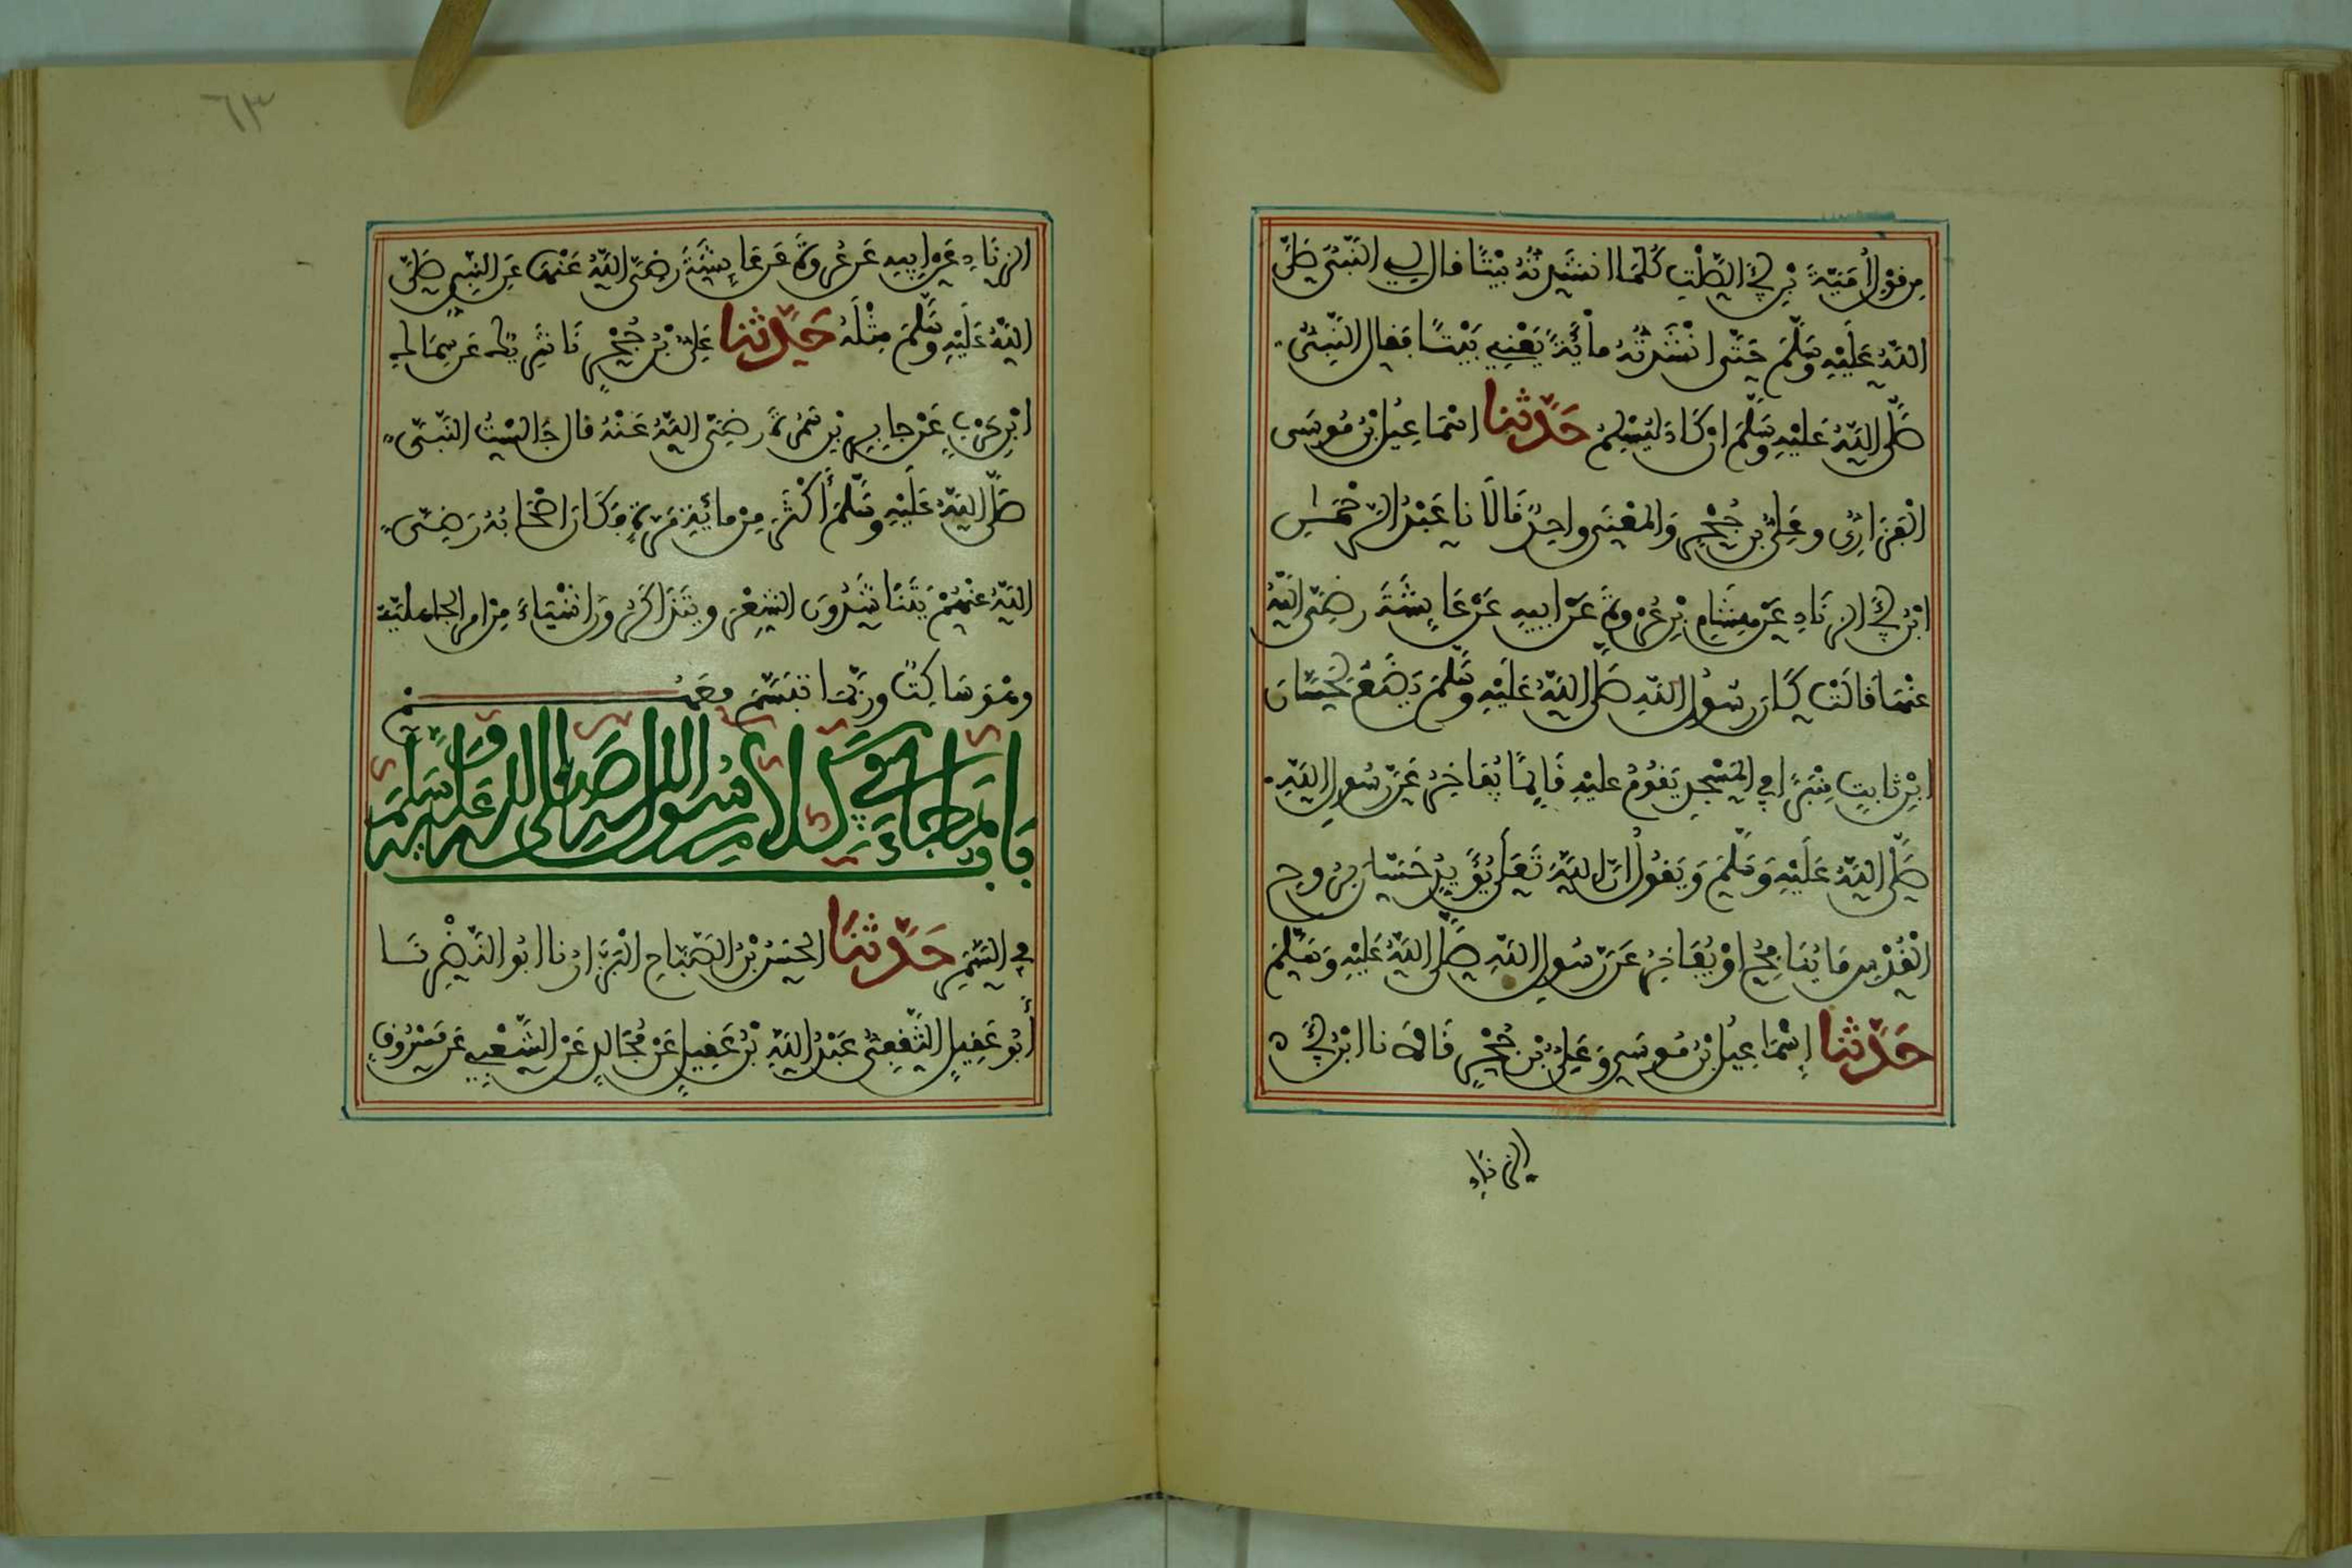 من قول أمية بن أبي الصلت كلما انشدته بيتا قال لي النبي صلى
الله عليه وسلم حتى انشدته مائة يعني بيتا فقال النبي
صلى الله عليه وسلم ان كاد ليسلم حدثنا اسماعيل بن موسى
الفزاري وعلي بن حجر والمعنى واحد قالا نا عبد الرحمن
ابن أبي الزناد عن هشام بن عروة عن ابيه عن عايشة رضي الله
عنها قالت كان رسول الله صلى الله عليه وسلم يضع لحسان
ابن ثابت منبرا في المسجد يقوم عليه قايما يفاخر عن رسول الله
صلى الله عليه وسلم ويقول ان الله تعلى يؤيد حسان بروح
القدس ما ينافح او يفاخر عن رسول الله صلى الله عليه وسلم
حدثنا إسماعيل بن موسى وعلي بن حجر قالا نا ابن أبي
الزناد
٦٣
الزناد عن ابيه عن عروة عن عايشة رضي الله عنها عن النبي صلى
الله عليه وسلم مثله حدثنا علي بن حجر نا شريك عن سماك
ابن حرب عن جابر بن سمرة رضي الله عنه قال جالست النبي
صلى الله عليه وسلم أكثر من مائة مرة وكان اصحابه رضي
الله عنهم يتناشدون الشعر ويتذاكرون اشياء من امر الجاهلية
وهو ساكت وربما تبسم معهم
باب ما جاء في كلام رسول الله صلى الله عليه وسلم
في السمر حدثنا الحسن بن الصباح البزار نا ابو النضر نا
أبو عقيل الثقفي عبد الله بن عقيل عن مجالد عن الشعبي عن مسروق